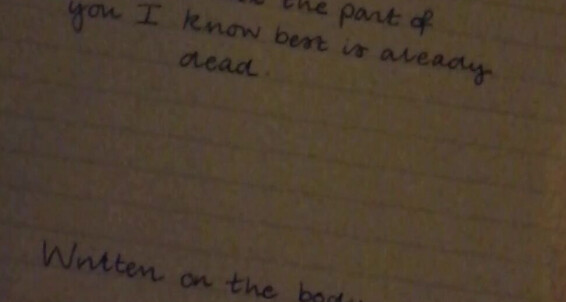 the part of
you I know best is aleady
dead.
Written on the body